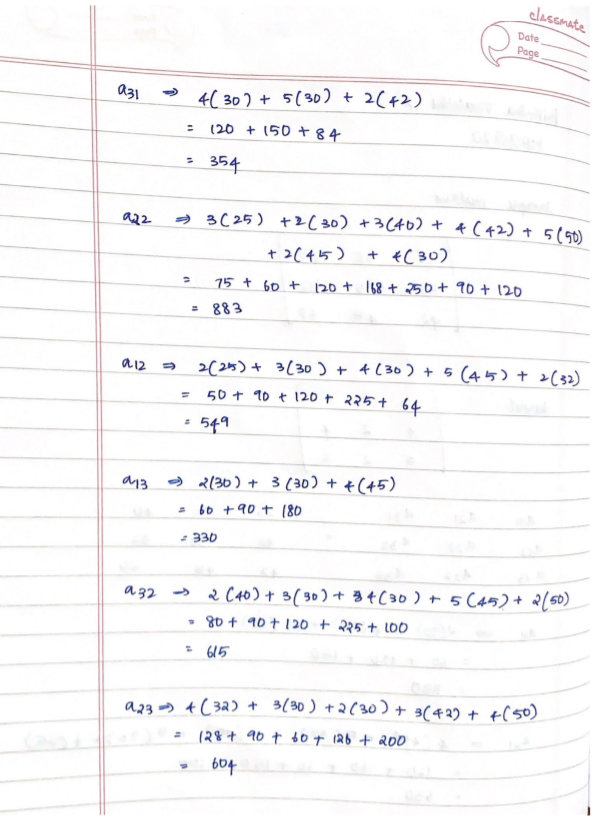 classmate
Date
Page
a31 ⇒ 4(30) + 5(30) + 2(42)
= 120 + 150 + 84
= 354
a22 ⇒ 3(25) + 2(30) + 3(40) + 4(42) + 5(50)
+ 2(45) + 4(30)
= 75 + 60 + 120 + 168 + 250 + 90 + 120
= 883
a12 ⇒ 2(25) + 3(30) + 4(30) + 5(45) + 2(32)
= 50 + 90 + 120 + 225 + 64
= 549
a13 ⇒ 2(30) + 3(30) + 4(45)
= 60 + 90 + 180
= 330
a32 → 2(40) + 3(30) + 4(30) + 5(45) + 2(50)
= 80 + 90 + 120 + 225 + 100
= 615
a23 ⇒ 4(32) + 3(30) + 2(30) + 3(42) + 4(50)
= 128 + 90 + 60 + 126 + 200
= 604